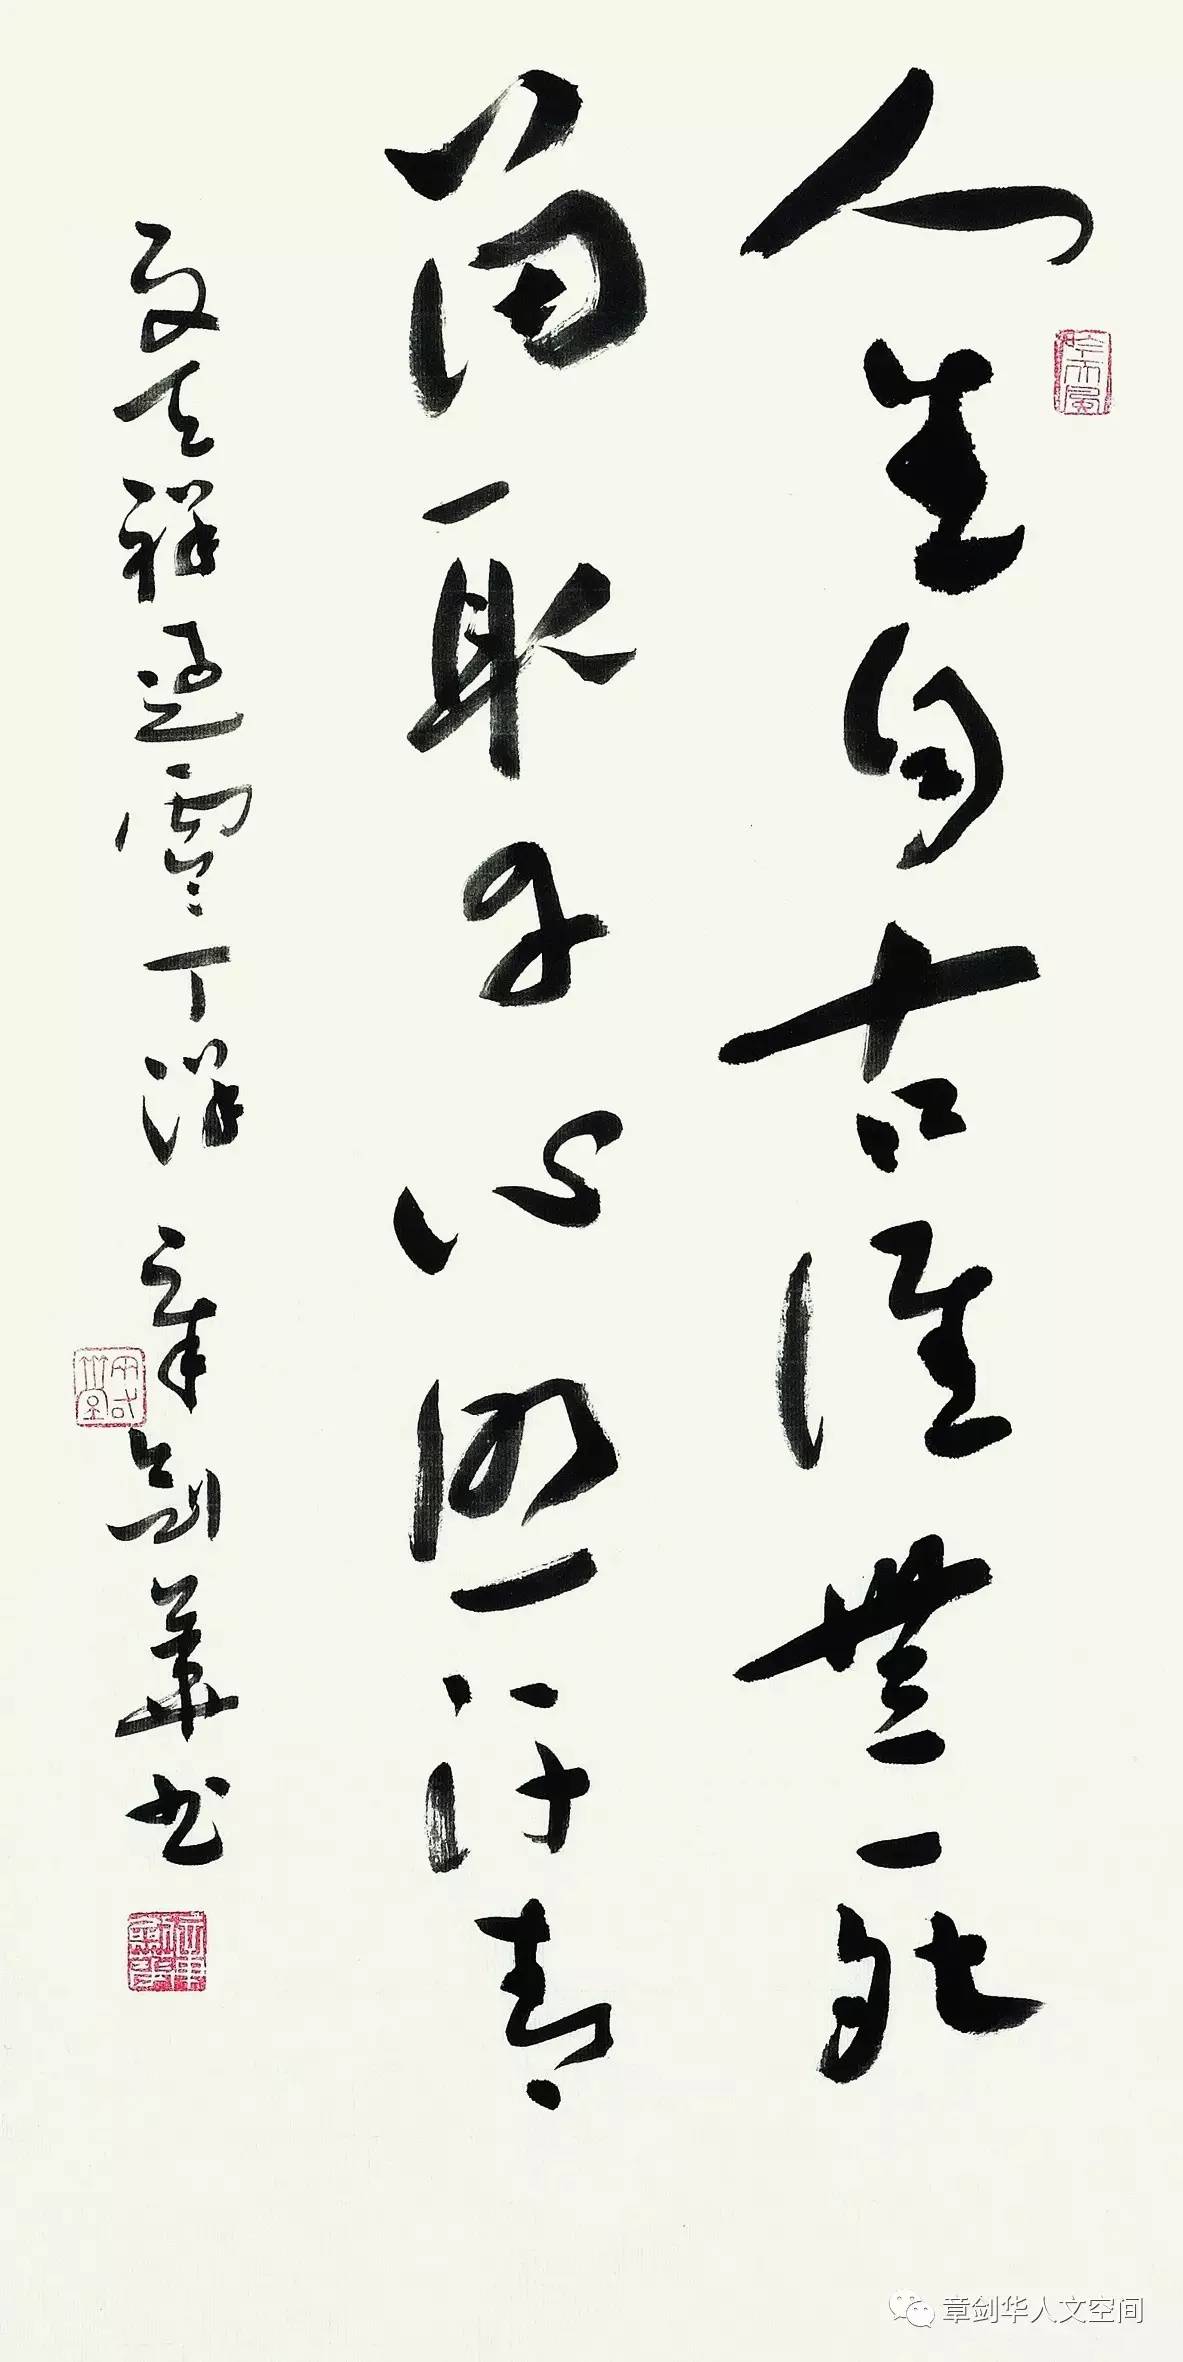 人生自古誰無死
留取丹心照汗青
文天祥過零丁洋 章劍華书
章剑华人文空间